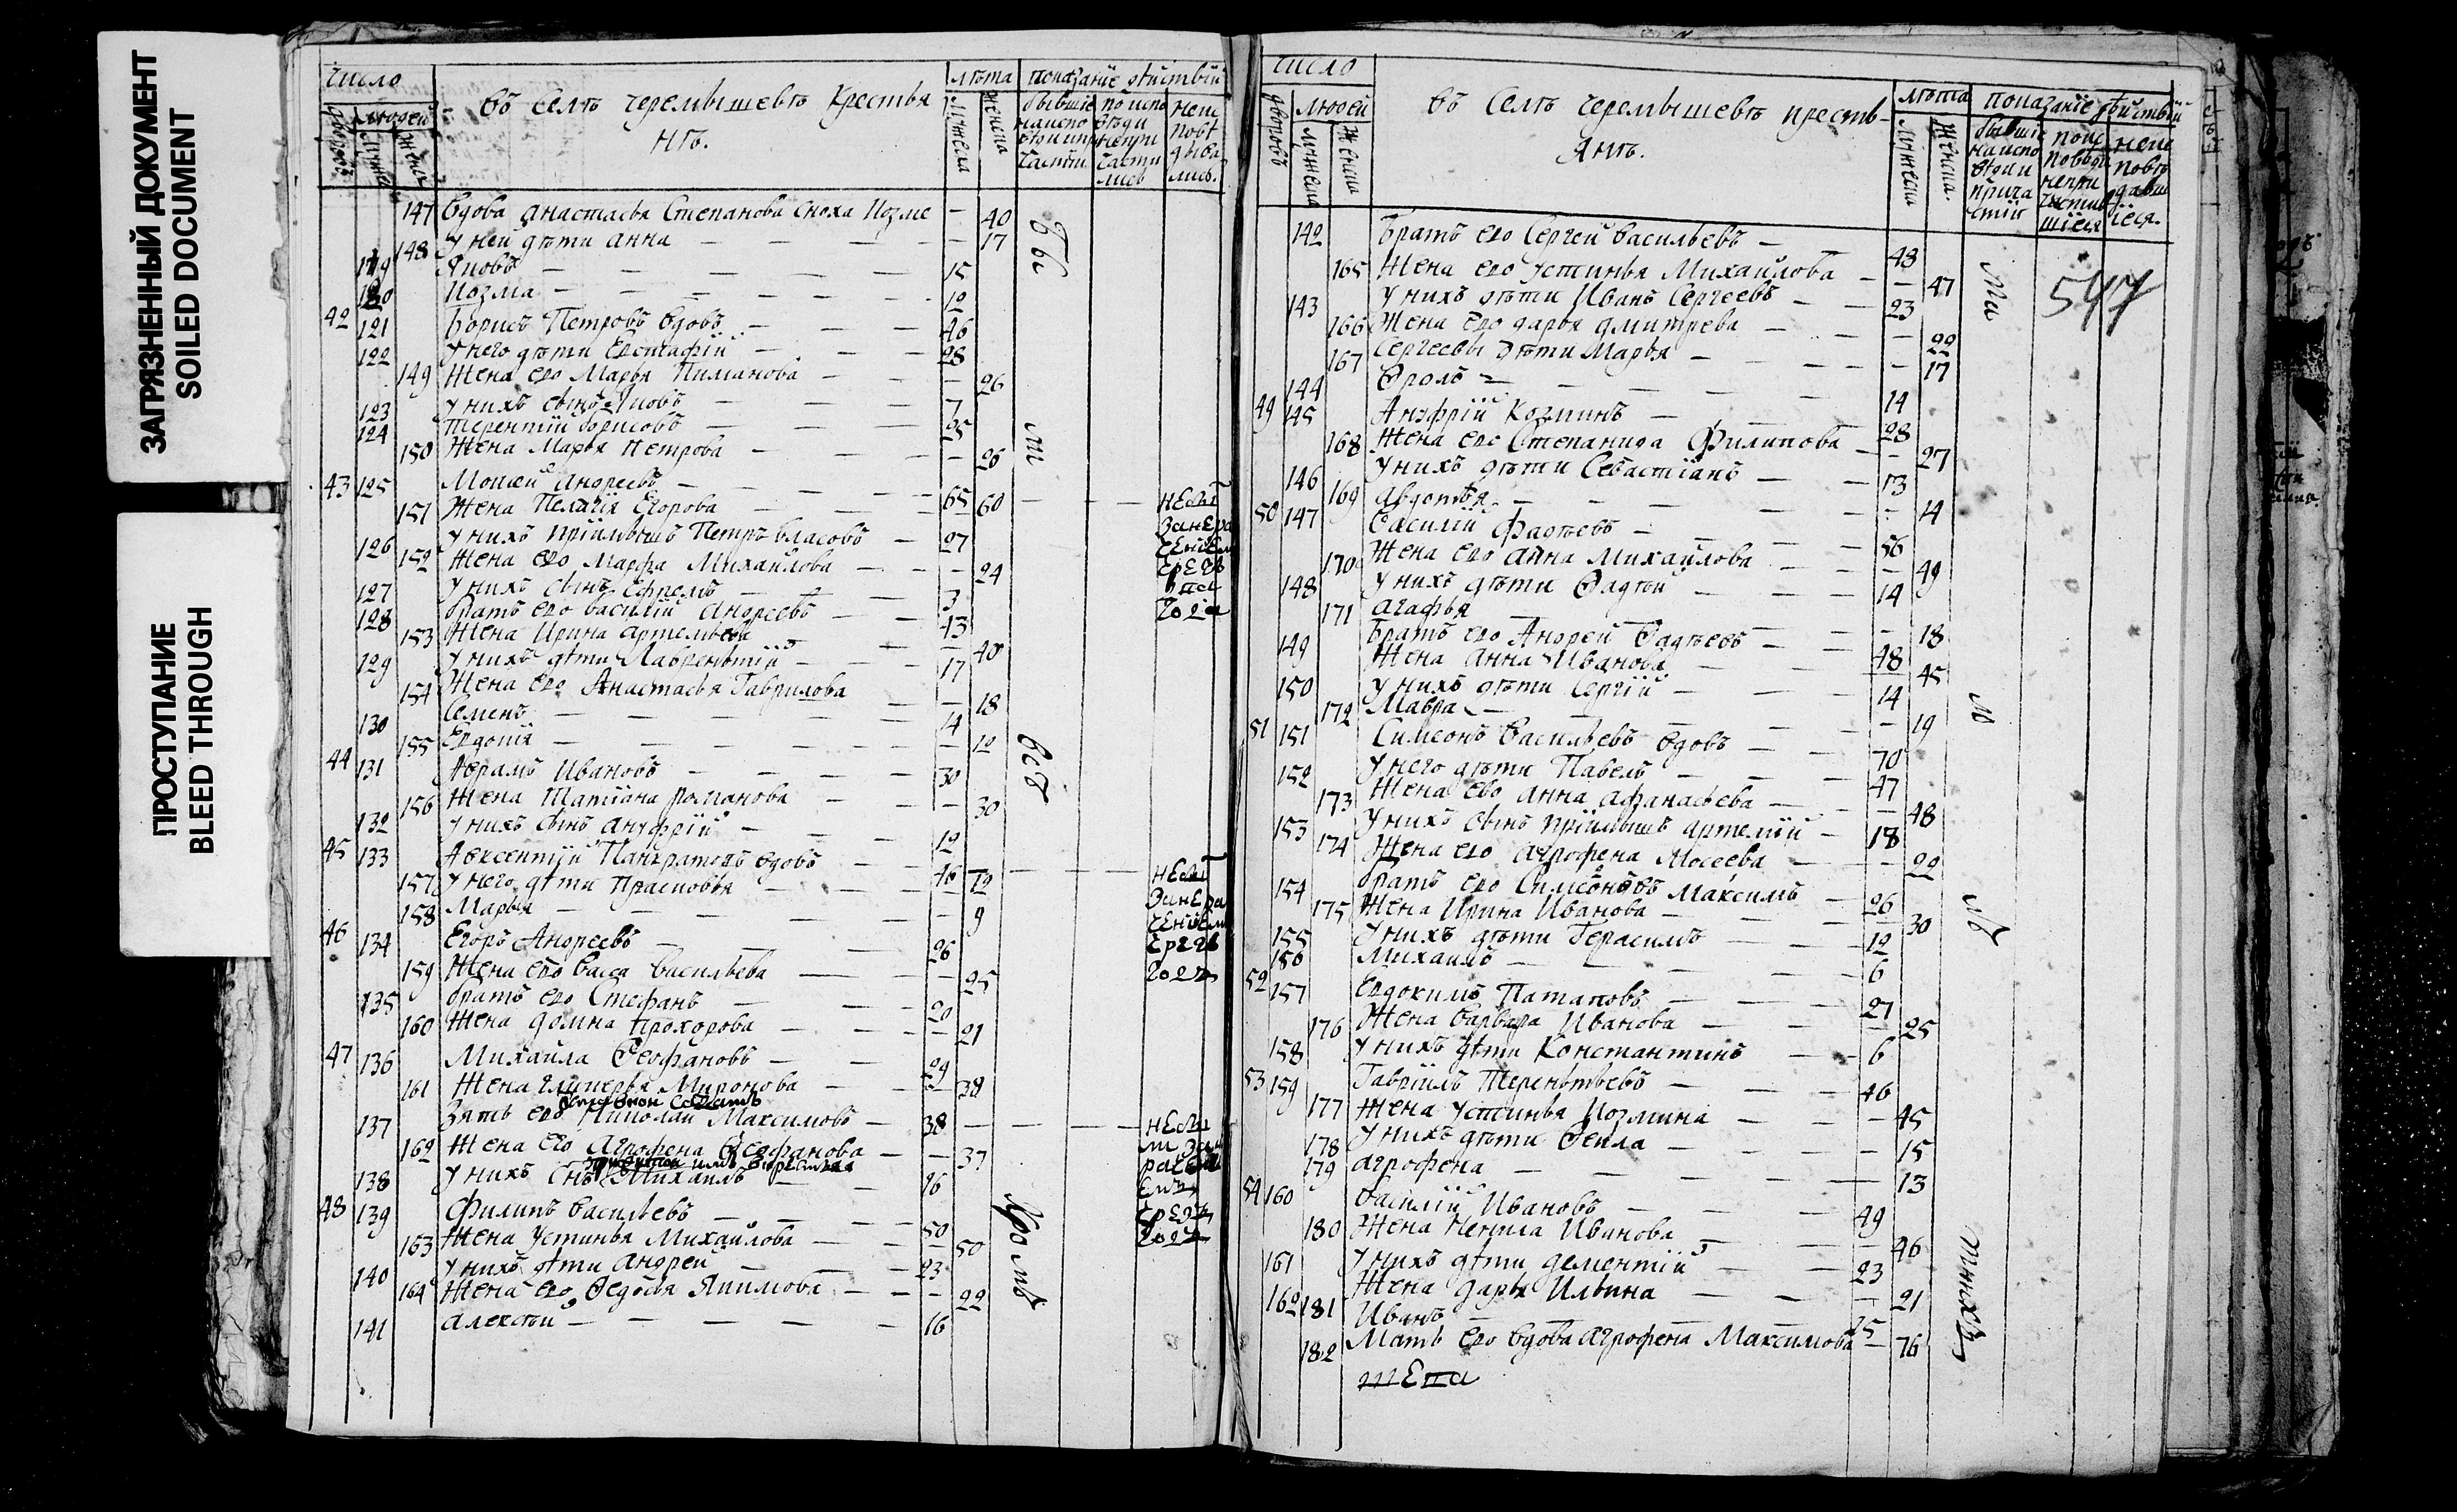 ЗАГРЯЗНЕННЫЙ ДОКУМЕНТ
SOILED DOCUMENT
ПРОСТУПАНИЕ
BLEED THROUGH
число
людей
въ Селѣ черемышевѣ крестья
нѣ.
лѣта показанїе дѣйствїй
147 вдова анастасья Степанова сноха Козме — 40
148 у ней дѣти анна — 17
119 Яковъ — 15
120 Козма — 12
42 121 Борисъ Петровъ вдовъ — 46
122 у него дѣти Евстафїй — 28
149 жена ево Марья Пиманова — 26
123 у нихъ сынъ Яковъ — 7
124 терентїй борисовъ — 25
150 жена Марья петрова — 26
43 125 Мосей андреевъ — 65
151 жена Пелагїя Егорова — 60
126 у нихъ прїимышъ Петръ власовъ — 27
152 жена ево марфа Михайлова — 24
127 у нихъ сынъ ефремъ — 3
128 братъ ево василїй андреевъ — 43
153 жена Ирина артемьева — 40
129 у нихъ дѣти Лаврентїй — 17
154 жена ево Анастасья Гаврилова — 18
130 Семенъ — 14
155 Евдокїя — 12
44 131 Аврамъ Ивановъ — 30
156 жена Татїана романова — 30
132 у нихъ сынъ ануфрїй — 12
45 133 Авксентїй Панкратовъ вдовъ — 46
157 у него дѣти Прасковья — 12
158 Марья — 9
46 134 Егоръ Андреевъ — 26
159 жена ево васса васильева — 25
135 братъ ево Стефанъ — 20
160 жена домна прохорова — 21
47 136 Михайла Феофановъ — 29
161 жена гликерья Миронова — 38
137 зять ево Николай Максимовъ — 38
162 жена его Агрофена Феофанова — 37
138 у нихъ снъ Михаилъ — 16
48 139 Филипъ васильевъ — 50
163 жена Устинья Михайлова — 50
140 у нихъ дѣти андрей — 23
164 жена ево Федосья Якимова — 22
141 алексѣй — 16
Бы
ли
всѣ
кромѣ
число
людей
въ Селѣ черемышевѣ крестья-
янъ.
лѣта показанїе дѣйствїй
547
142 братъ ево Сергей васильевъ — 48
165 жена ево устинья Михайлова — 47
143 у нихъ дѣти Иванъ Сергеевъ — 23
166 жена ево дарья дмитрева — 22
167 Сергеевы дѣти Марья — 17
144 Фролъ — 14
49 145 Ануфрїй Козминъ — 28
168 жена ево Степанида Филипова — 27
146 у нихъ дѣти Севастїанъ — 13
169 авдотья — 14
50 147 василїй Фадѣевъ — 56
170 жена ево анна Михайлова — 49
148 у нихъ дѣти Фадѣй — 14
171 агафья — 18
149 братъ ево Андрей Фадѣевъ — 48
жена анна Иванова — 45
150 у нихъ дѣти Сергїй — 14
172 Мавра — 19
51 151 Симеонъ васильевъ вдовъ — 70
152 у него дѣти Павелъ — 47
173 жена ево анна афанасьева — 48
153 у нихъ сынъ прїимышъ артемїй — 18
174 жена ево агрофена Мосеева — 22
154 братъ ево Симеоновъ Максимъ — 26
175 жена Ирина Иванова — 30
155 у нихъ дѣти Герасимъ — 12
156 Михаилъ — 6
52 157 Евдокимъ Патаповъ — 27
176 жена варвара Иванова — 25
158 у нихъ дѣти Константинъ — 6
53 159 Гаврїилъ Терентьевъ — 46
177 жена устинья Козмина — 45
178 у нихъ дѣти Фекла — 15
179 агрофена — 13
54 160 василїй Ивановъ — 49
180 жена Ненила Иванова — 46
161 у нихъ дѣти дементїй — 23
181 жена дарья Ильина — 21
162 Иванъ — 15
182 мать ево вдова агрофена Максимова — 76